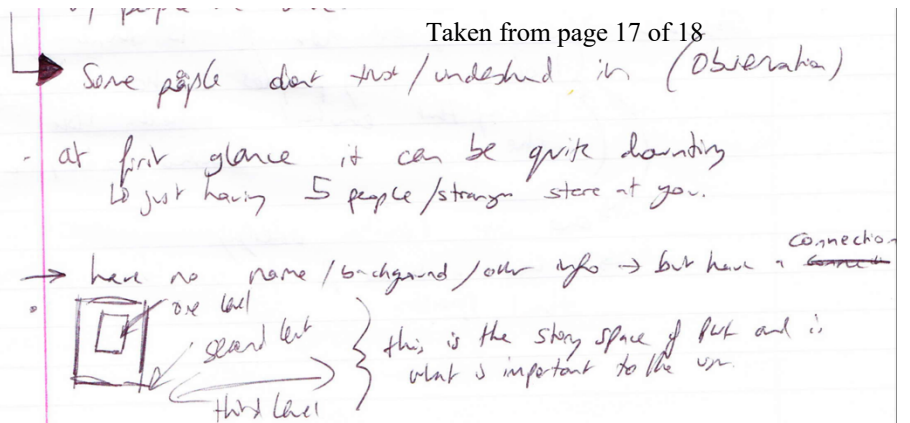 people
Taken from page 17 of 18
Some people dont trust / understand in (Observation)
- at first glance it can be quite daunting
↳ just having 5 people / stranger stare at you.
→ have no name / background / other info → but have a connection
one level
second level
third level
this is the story space of and is
what is important to the user.